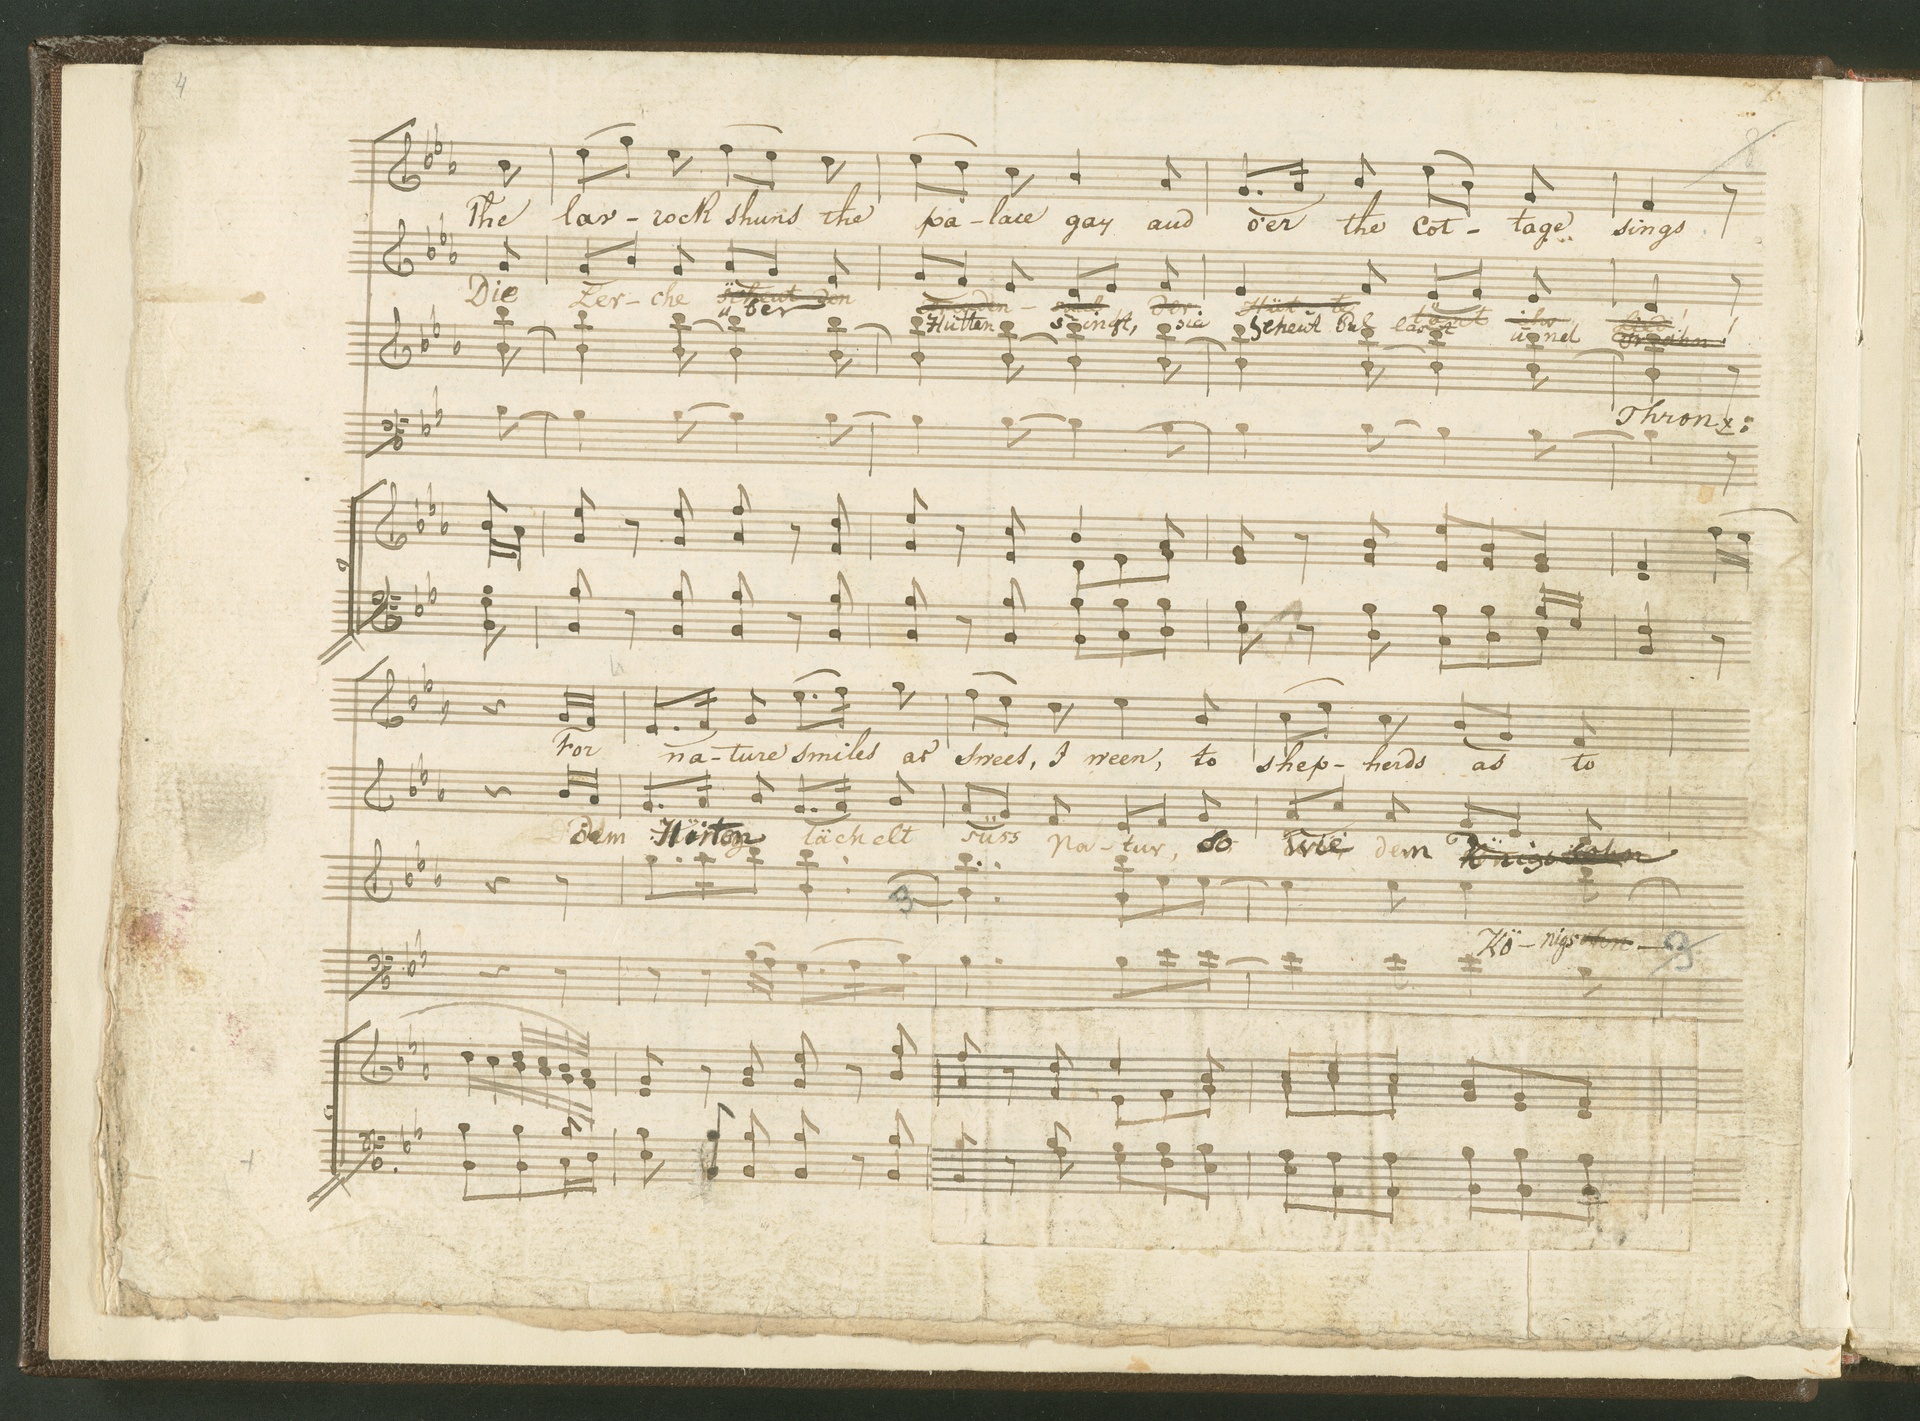 4
The lav-rock shuns the pa-lace gay and o'er the cot-tage sings
Die Ler-che scheut den
über Hütten singt, sie scheut Pal und
Thron
For na-ture smiles as sweet, I ween, to shep-herds as to
dem Hirten lächelt süss Na-tur, so wie dem Königssohn
Kö-nigssohn-